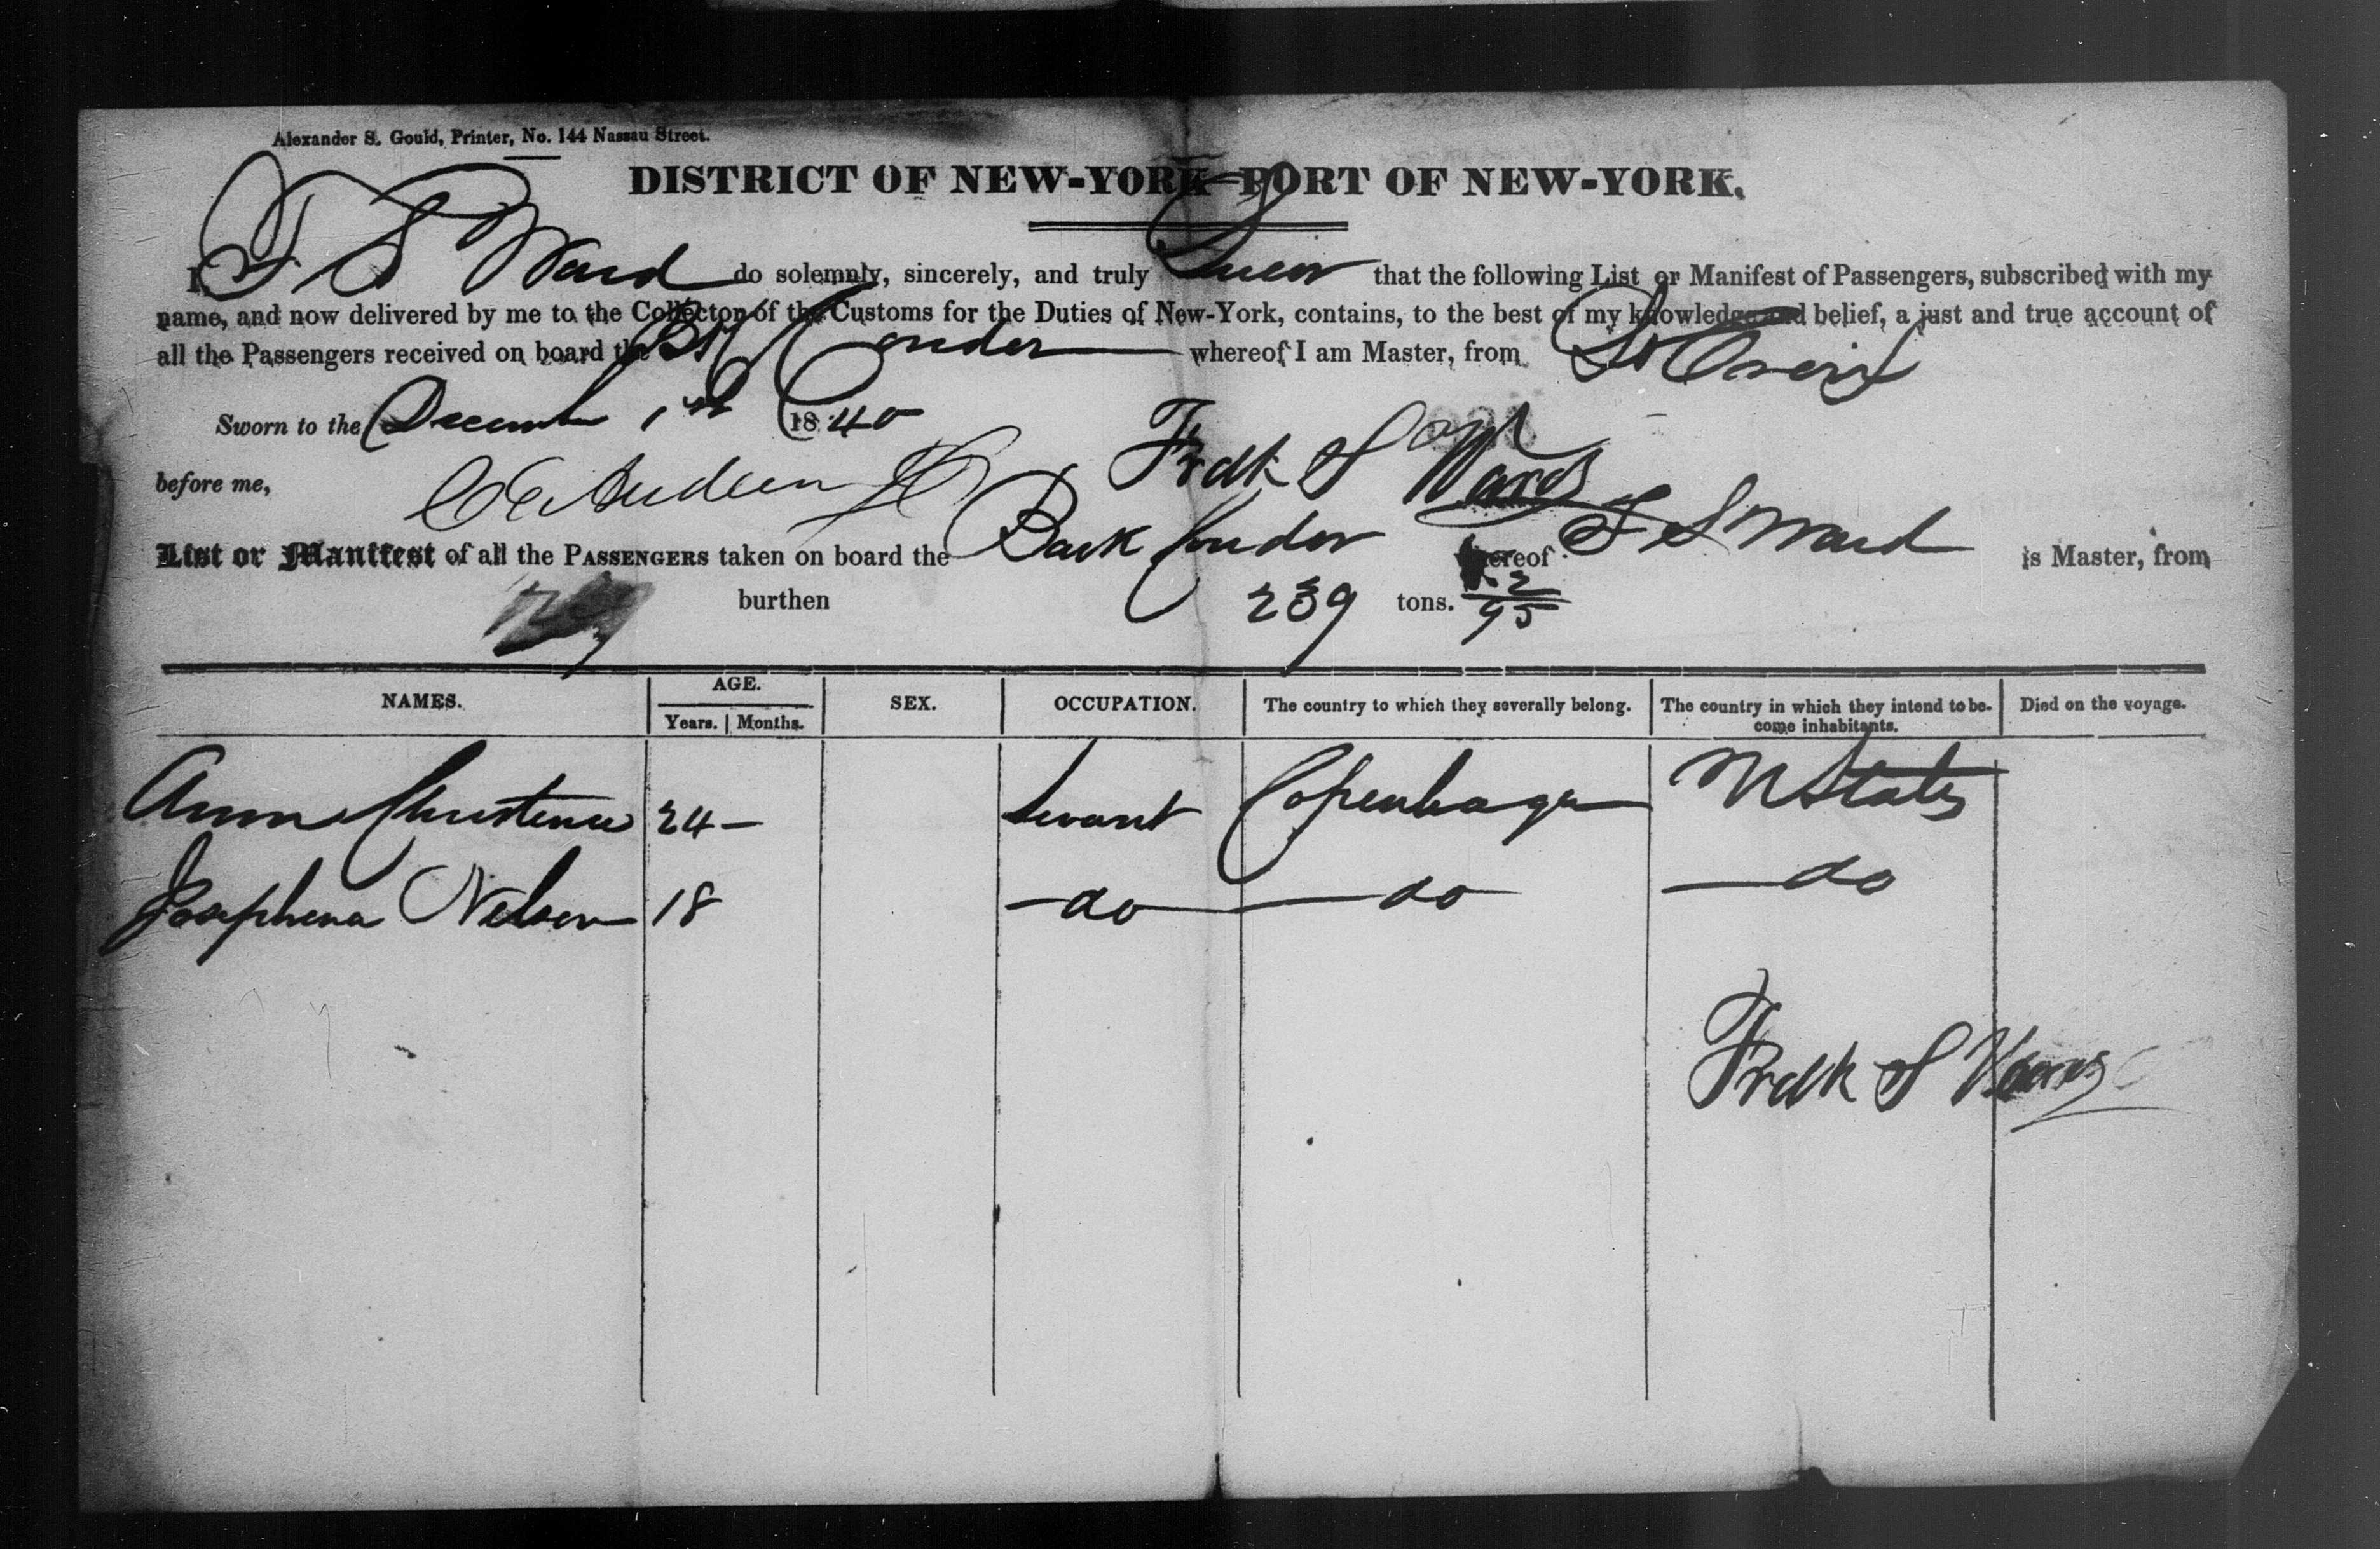 Alexander S. Gould, Printer, No. 144 Nassau Street.
DISTRICT OF NEW-YORK—PORT OF NEW-YORK.
I, F S Ward do solemnly, sincerely, and truly Swear that the following List or Manifest of Passengers, subscribed with my
name, and now delivered by me to the Collector of the Customs for the Duties of New-York, contains, to the best of my knowledge and belief, a just and true account of
all the Passengers received on board the Bk Condor whereof I am Master, from St Croix
Sworn to the December 1st 1840
Fredk S Ward
before me,
List or Manifest of all the PASSENGERS taken on board the Bark Condor whereof F S Ward is Master, from
burthen 239 tons. 2/95
NAMES. AGE. SEX. OCCUPATION. The country to which they severally belong. The country in which they intend to be- Died on the voyage.
Years. Months. come inhabitants.
Ann Christena 24 — servant Copenhagen U States
Josephena Nelson 18 — do — do — do
Fredk S Ward